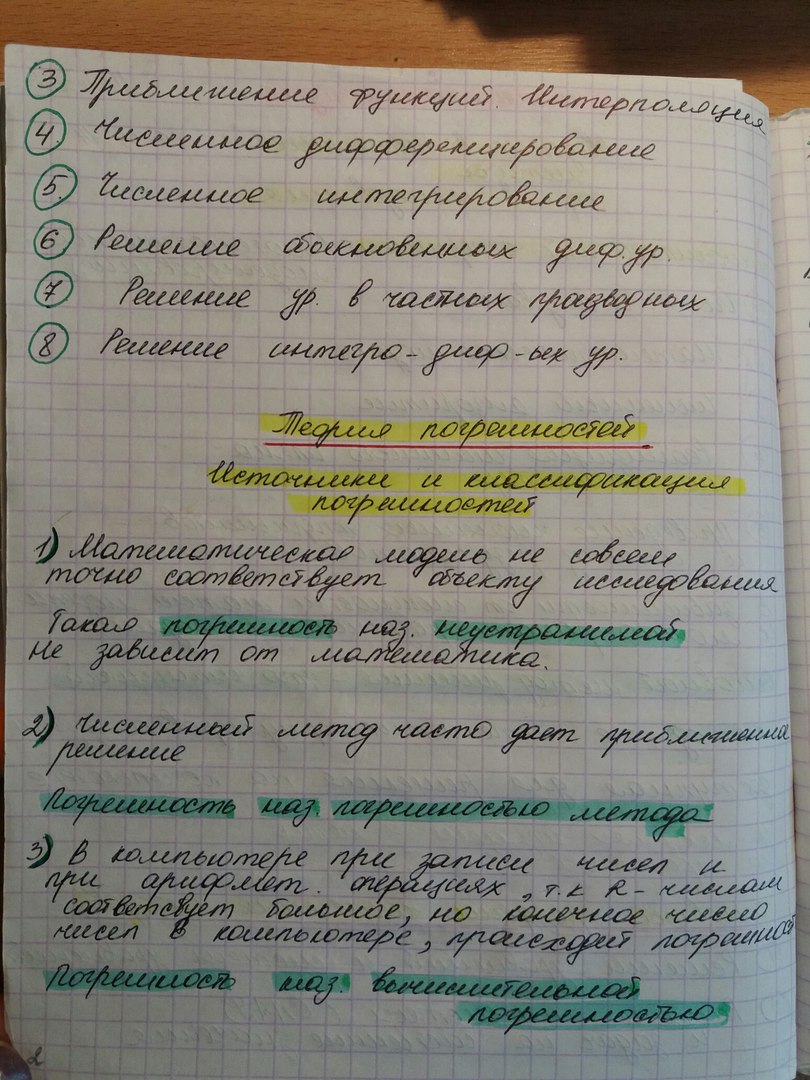 3 Приближение функций. Интерполяция
4. Численное дифференцирование
5. Численное интегрирование
6 Решение обыкновенных диф.ур.
7 Решение ур. в частных производных
8 Решение интегро-диф-ых ур.
Теория погрешностей
Источники и классификация
погрешностей
1) Математическая модель не совсем
точно соответствует объекту исследования
Такая погрешность наз. неустранимой
Не зависит от математика.
2) Численный метод часто дает приближенно
решение
Погрешность наз. погрешностью метода
3) В компьютере при записи чисел и
при арифмет. операциях, т.к R-числам
соответсвует большое, но конечное число
чисел в компьютере, происходит погрешност
Погрешность наз. вычислительной
погрешностью
2